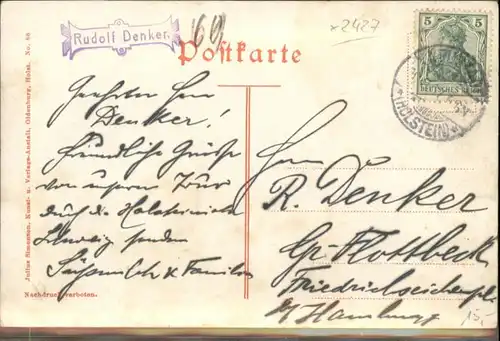 Rudolf Denker.
69
x2427
Postkarte
5
DEUTSCHES REICH
(HOLSTEIN)
Julius Simonsen, Kunst- u. Verlags-Anstalt, Oldenburg, Holst. No. 88
Geehrter Herr
Denker!
Freundliche Grüße
von unserer Tour
durch die
senden
& Familie
Nachdruck verboten.
Herrn
R. Denker
Gr. Flottbeck
b/ Hamburg
15,-